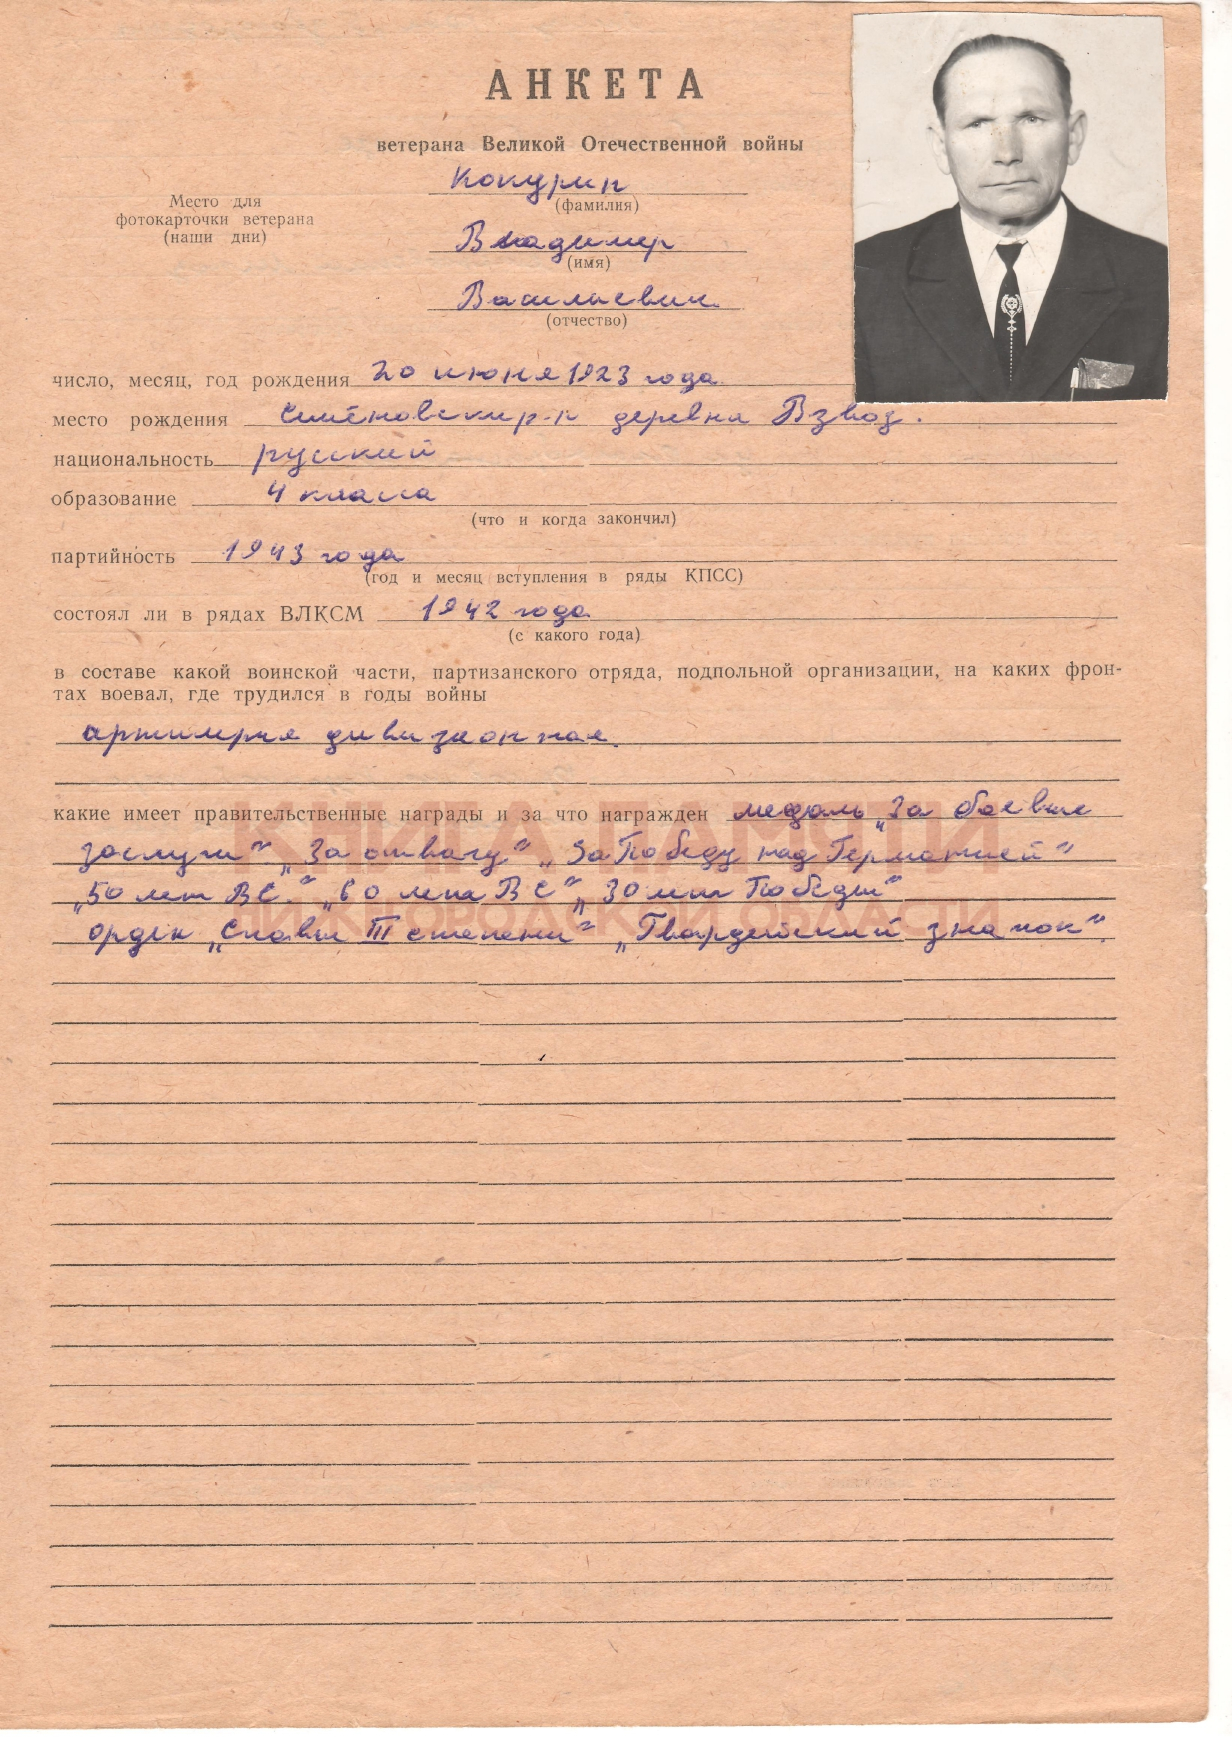 АНКЕТА
ветерана Великой Отечественной войны
Место для
фотокарточки ветерана
(наши дни)
Кокурин
(фамилия)
Владимир
(имя)
Васильевич
(отчество)
число, месяц, год рождения 20 июня 1923 года
место рождения Семёновский р-н деревня Взвоз.
национальность русский
образование 4 класса
(что и когда закончил)
партийность 1943 года
(год и месяц вступления в ряды КПСС)
состоял ли в рядах ВЛКСМ 1942 года
(с какого года)
в составе какой воинской части, партизанского отряда, подпольной организации, на каких фрон-
тах воевал, где трудился в годы войны
артилерия дивизионная.
какие имеет правительственные награды и за что награжден медаль „За боевые
заслуги“ „За отвагу“ „За Победу над Германией“
„50 лет ВС.“ „60 лет ВС“ „30 лет Победы“
орден „Славы III степени“ „Гвардейский значок“.
КНИГА ПАМЯТИ
НИЖЕГОРОДСКОЙ ОБЛАСТИ